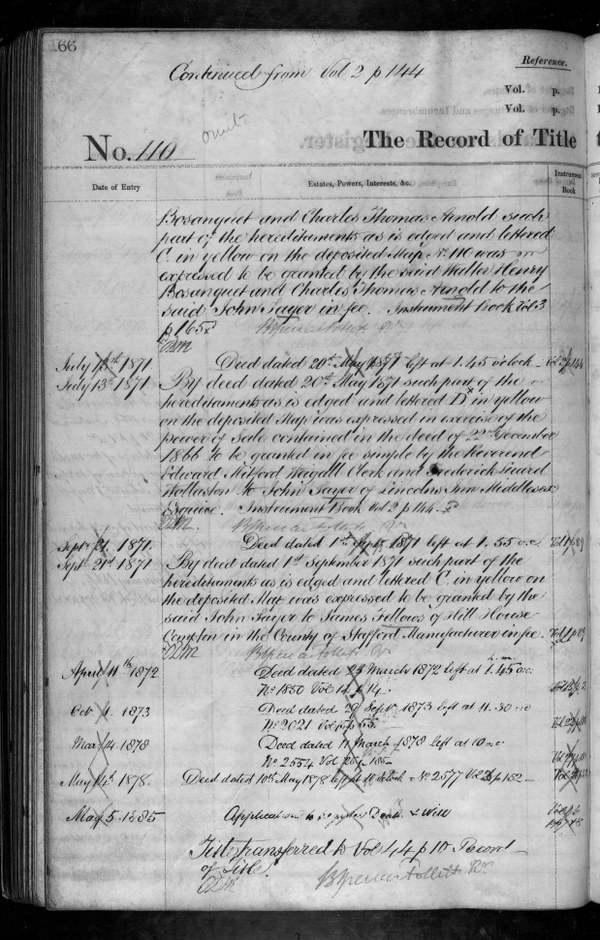 166
Continued from Vol 2 p 144
Reference.
Vol. p.
Vol. p.
omit
No. 110
The Record of Title
Date of Entry
Estates, Powers, Interests, &c.
Instrument Book
Bosanquet and Charles Thomas Arnold such
part of the hereditaments as is edged and lettered
C in yellow on the deposited Map No. 110 was
expressed to be granted by the said Walter Henry
Bosanquet and Charles Thomas Arnold to the
said John Sayer in fee. Instrument Book Vol 3
p 165
July 13th 1871 Deed dated 20th May 1871 left at 1.45 o'clock Vol 2 p 144
July 13th 1871 By deed dated 20th May 1871 such part of the
hereditaments as is edged and lettered D in yellow
on the deposited Map was expressed in exercise of the
power of Sale contained in the deed of 22nd December
1866 to be granted in fee simple by the Reverend
Edward Mitford Weigall Clerk and Frederick Luard
Wollaston to John Sayer of Lincolns Inn Middlesex
Esquire. Instrument Book Vol 2 p 144.
Sept. 21. 1871. Deed dated 1st Sept. 1871 left at 1.55 o.c.
Sept. 21st 1871 By deed dated 1st September 1871 such part of the
hereditaments as is edged and lettered C in yellow on
the deposited Map was expressed to be granted by the
said John Sayer to James Fellows of Hill House
Compton in the County of Stafford Manufacturer in fee.
April 11th 1872 Deed dated 23 March 1872 left at 1.45 o.c.
No 1850 Vol 14 p 14.
Oct 4. 1873 Deed dated 29 Septr 1873 left at 11.30 o.c.
No 2021 Vol 15 p 55.
Mar 12. 1878 Deed dated 11 March 1878 left at 10 o.c.
No 2554 Vol 25 p 185
May 14th 1878. Deed dated 10th May 1878 left at 10 o'clock No 2577 Vol 25 p 182
May 5. 1885 Application to register Death & Will
Title transferred to Vol 44 p 10 Record
of Title.
B Spencer Follett Rr.